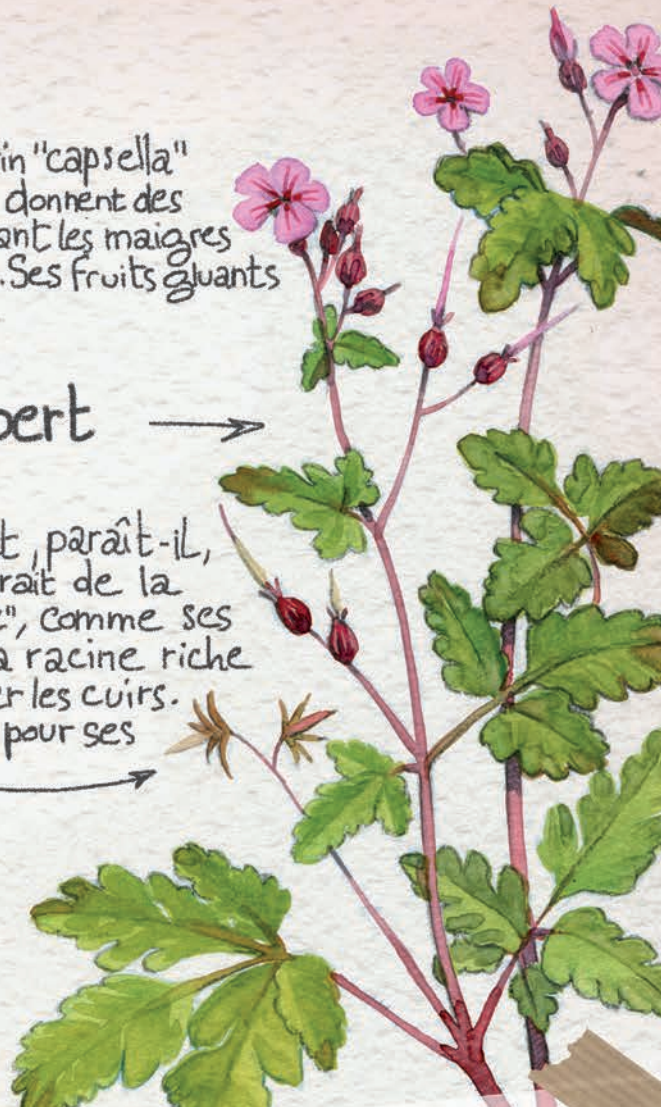 in "capsella"
donnent des
ant les maigres
. Ses fruits gluants
bert
t, paraît-il,
rait de la
", comme ses
a racine riche
er les cuirs.
pour ses